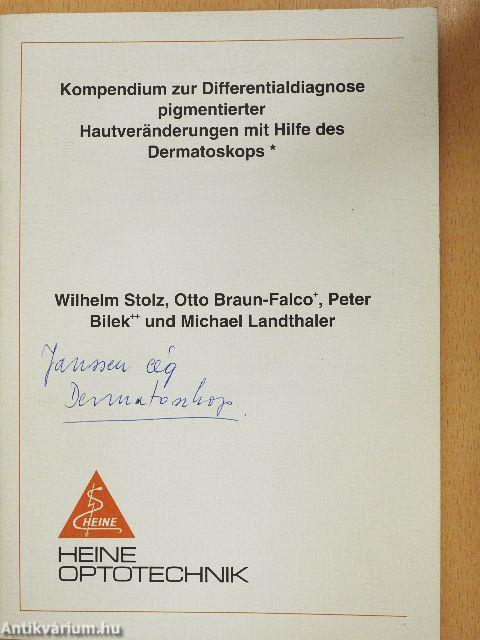 Kompendium zur Differentialdiagnose
pigmentierter
Hautveränderungen mit Hilfe des
Dermatoskops *
Wilhelm Stolz, Otto Braun-Falco⁺, Peter
Bilek⁺⁺ und Michael Landthaler
Janssen cég
Dermatoskop.
HEINE
HEINE
OPTOTECHNIK
Antikvárium.hu